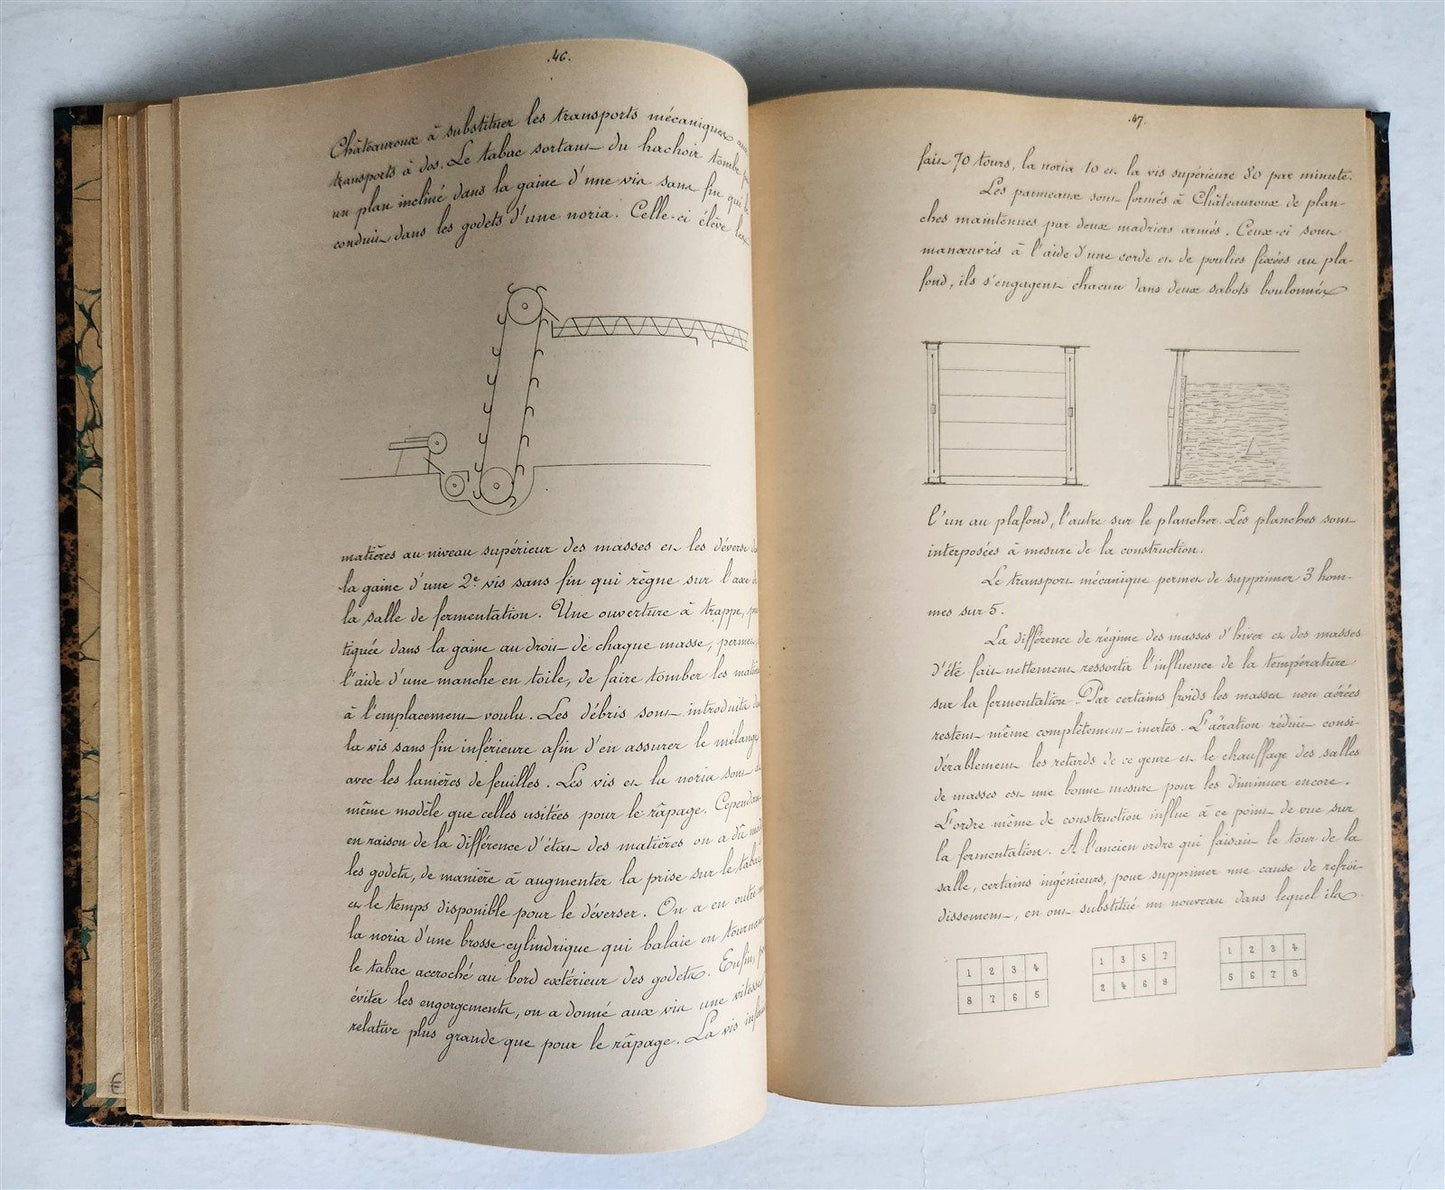 .46.
Châteauroux à substituer les transports mécaniques aux
transports à dos. Le tabac sortant du hachoir tombe
un plan incliné dans la gaine d'une vis sans fin qui le
conduit dans les godets d'une noria. Celle-ci élève les
matières au niveau supérieur des masses et les déverse
la gaine d'une 2e vis sans fin qui règne sur l'axe de
la salle de fermentation. Une ouverture à trappe,
tiquée dans la gaine au droit de chaque masse, permet,
l'aide d'une manche en toile, de faire tomber les
à l'emplacement voulu. Les débris sont introduits
la vis sans fin inférieure afin d'en assurer le mélange
avec les lanières de feuilles. Les vis et la noria sont
même modèle que celles usitées pour le râpage. Cependant
en raison de la différence d'état des matières on a dû
les godets, de manière à augmenter la prise sur le tabac
et le temps disponible pour le déverser. On a en outre
la noria d'une brosse cylindrique qui balaie en tournant
le tabac accroché au bord extérieur des godets. Enfin,
éviter les engorgements, on a donné aux vis une vitesse
relative plus grande que pour le râpage. La vis
.47.
fait 70 tours, la noria 10 et la vis supérieure 80 par minute.
Les panneaux sont formés à Châteauroux de plan-
ches maintenues par deux madriers armés. Ceux-ci sont
manœuvrés à l'aide d'une corde et de poulies fixées au pla-
fond, ils s'engagent chacun dans deux sabots boulonnés
l'un au plafond, l'autre sur le plancher. Les planches sont
interposées à mesure de la construction.
Le transport mécanique permet de supprimer 3 hom-
mes sur 5.
La différence de régime des masses d'hiver et des masses
d'été fait nettement ressortir l'influence de la température
sur la fermentation. Par certains froids les masses non aérées
restent même complètement inertes. L'aération réduit consi-
dérablement les retards de ce genre et le chauffage des salles
de masses est une bonne mesure pour les diminuer encore.
L'ordre même de construction influe à ce point de vue sur
la fermentation. A l'ancien ordre qui faisait le tour de la
salle, certains ingénieurs, pour supprimer une cause de refroi-
dissement, en ont substitué un nouveau dans lequel ils
1 2 3 4
8 7 6 5
1 3 5 7
2 4 6 8
1 2 3 4
5 6 7 8